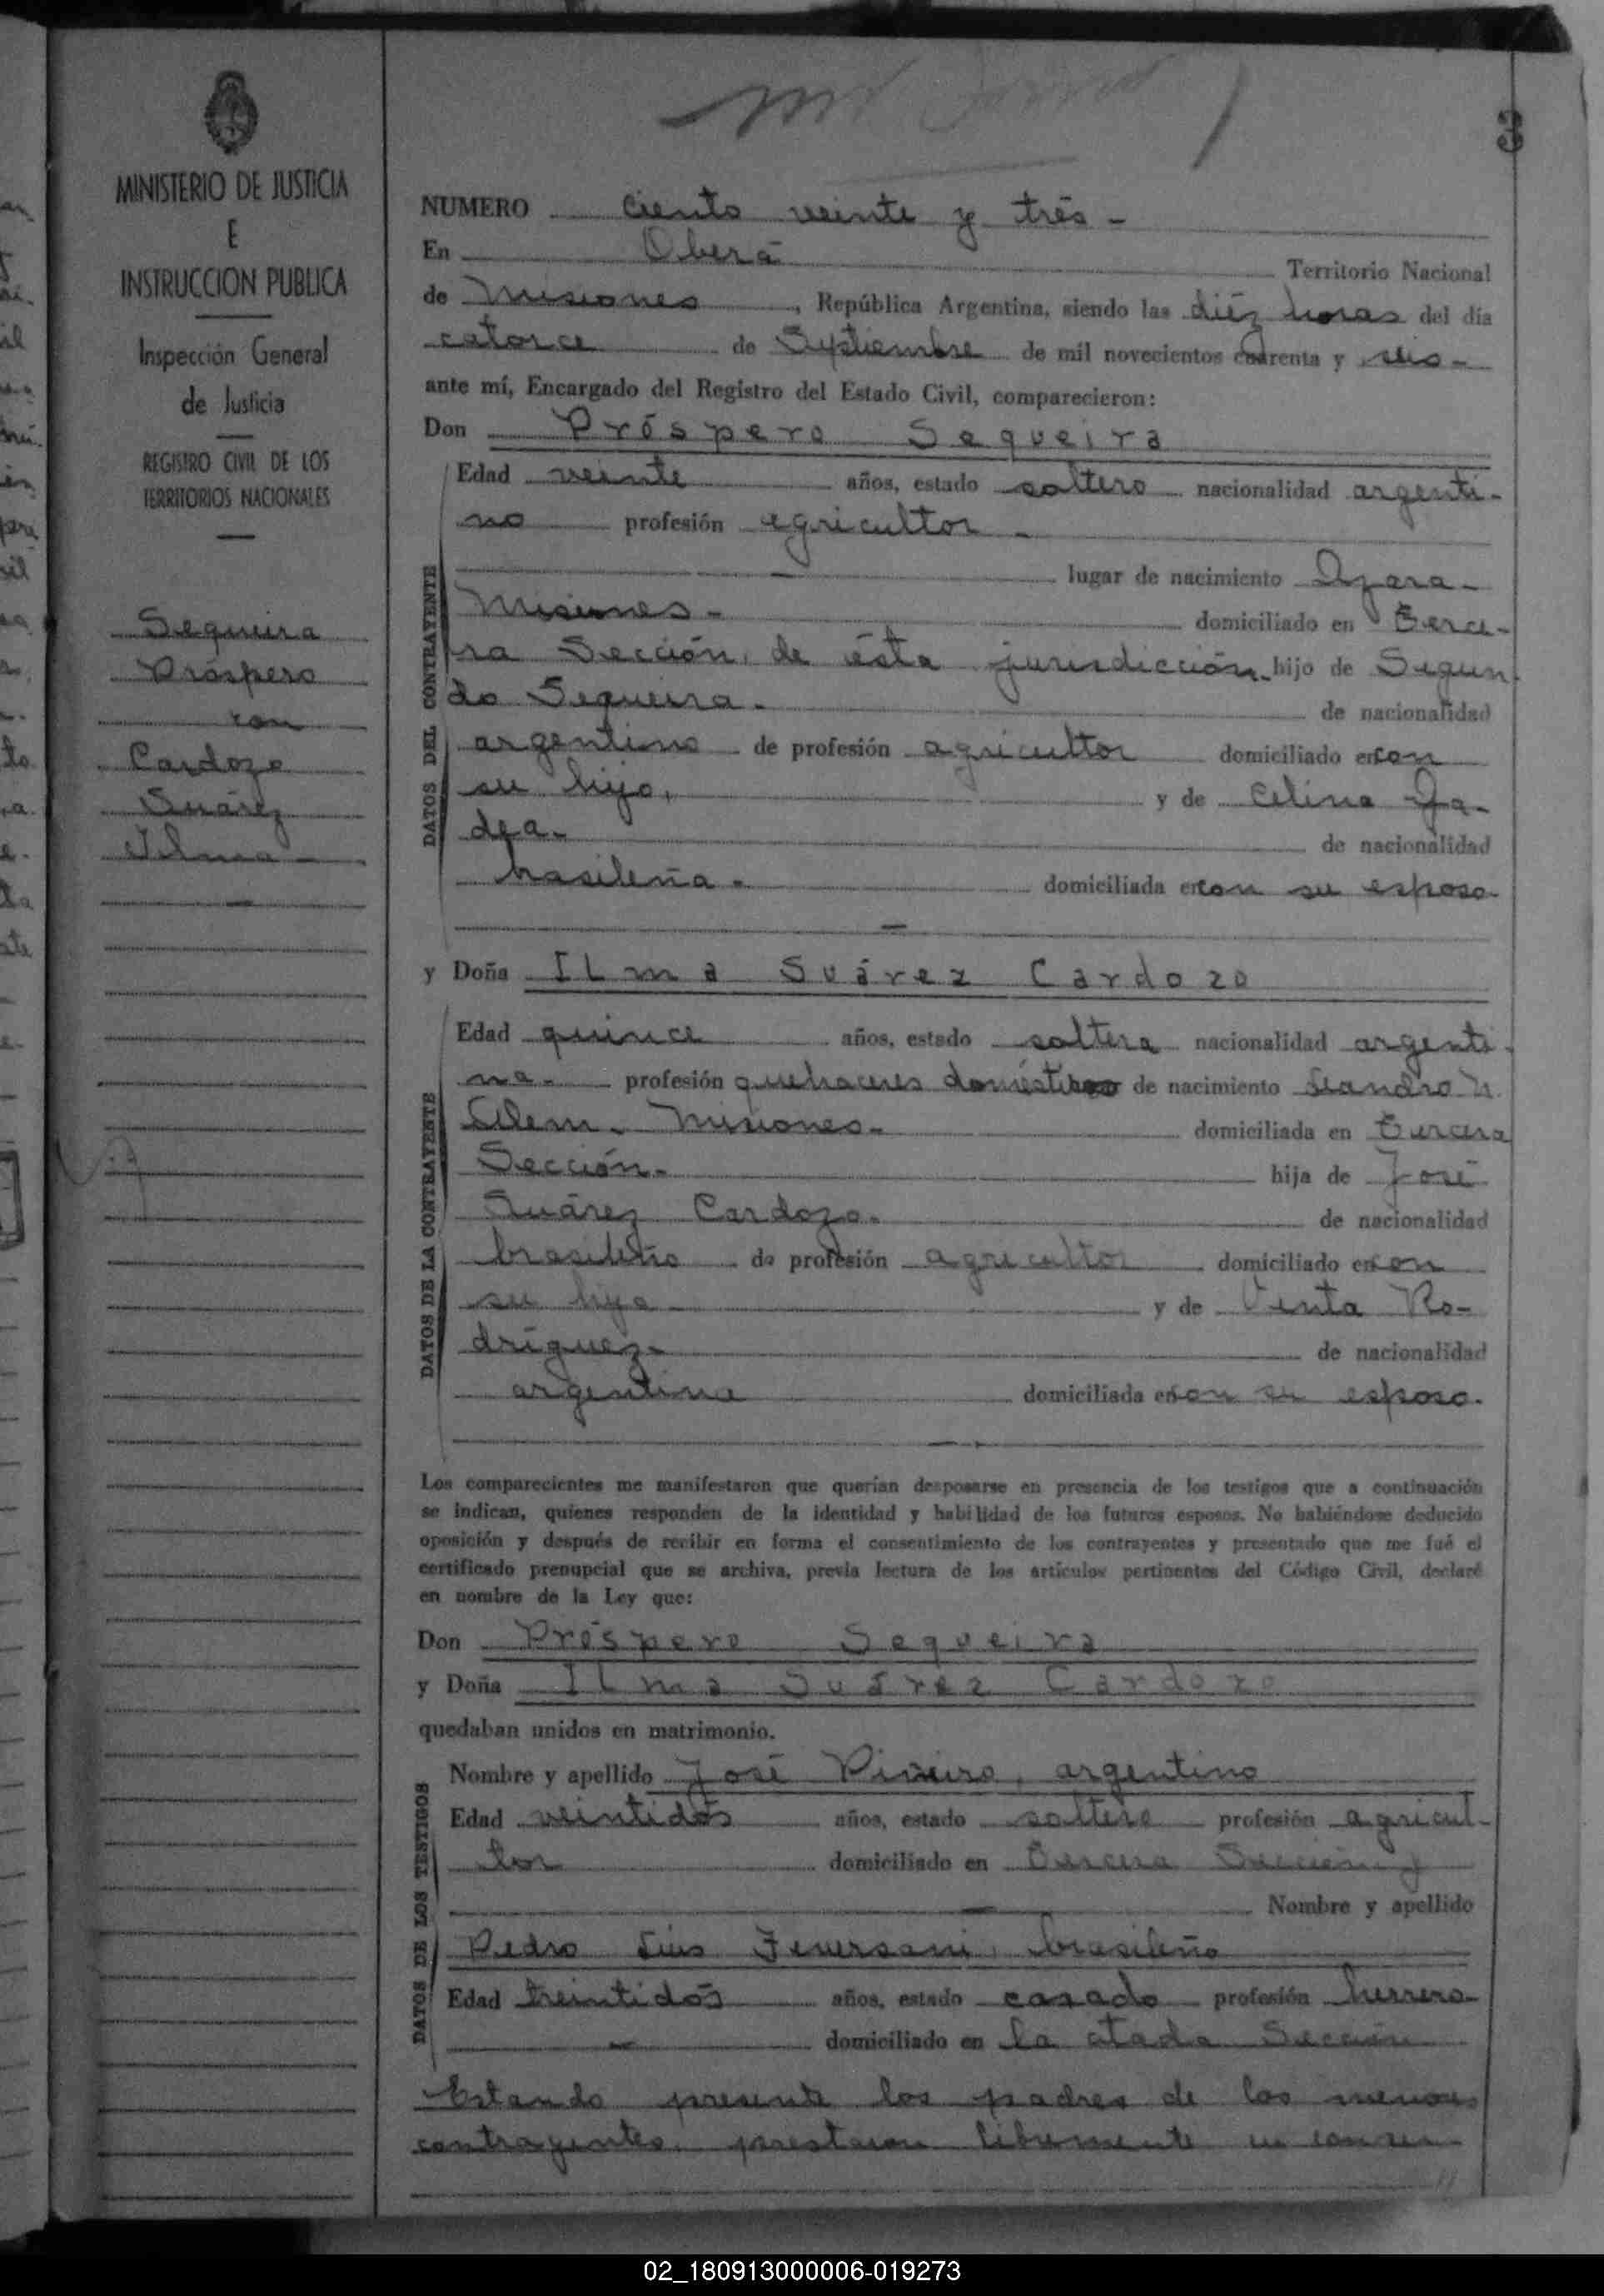 3
MINISTERIO DE JUSTICIA
E
INSTRUCCION PUBLICA
Inspección General
de Justicia
REGISTRO CIVIL DE LOS
TERRITORIOS NACIONALES
Sequeira
Próspero
con
Cardozo
Suárez
Ilma
NUMERO ciento veinte y trés -
En Oberá Territorio Nacional
de Misiones, República Argentina, siendo las diéz horas del día
catorce de Septiembre de mil novecientos cuarenta y seis -
ante mí, Encargado del Registro del Estado Civil, comparecieron:
Don Próspero Sequeira
DATOS DEL CONTRAYENTE
Edad veinte años, estado soltero nacionalidad argenti-
no profesión agricultor -
lugar de nacimiento Azara -
Misiones - domiciliado en Terce-
ra Sección, de ésta jurisdicción. hijo de Segun
do Sequeira. de nacionalidad
argentino de profesión agricultor domiciliado en con
su hijo, y de Celina
dea. de nacionalidad
brasileña. domiciliada en con su esposo.
y Doña Ilma Suárez Cardozo
DATOS DE LA CONTRAYENTE
Edad quince años, estado soltera nacionalidad argenti-
na. profesión quehaceres domésticos de nacimiento Leandro N.
Alem. Misiones. domiciliada en Tercera
Sección. hija de José
Suárez Cardozo. de nacionalidad
brasileño de profesión agricultor domiciliado en con
su hija y de Ro-
dríguez. de nacionalidad
argentina domiciliada en con su esposo.
Los comparecientes me manifestaron que querían desposarse en presencia de los testigos que a continuación
se indican, quienes responden de la identidad y habilidad de los futuros esposos. No habiéndose deducido
oposición y después de recibir en forma el consentimiento de los contrayentes y presentado que me fué el
certificado prenupcial que se archiva, previa lectura de los artículos pertinentes del Código Civil, declaré
en nombre de la Ley que:
Don Próspero Sequeira
y Doña Ilma Suárez Cardozo
quedaban unidos en matrimonio.
DATOS DE LOS TESTIGOS
Nombre y apellido José Piñeiro, argentino
Edad veintidós años, estado soltero profesión agricul-
tor domiciliado en Tercera Sección y
Nombre y apellido
Pedro Luis brasileño
Edad treintidós años, estado casado profesión herrero
domiciliado en la citada Sección
Estando presente los padres de los menores
contrayentes, prestaron libremente su consen-
02_180913000006-019273